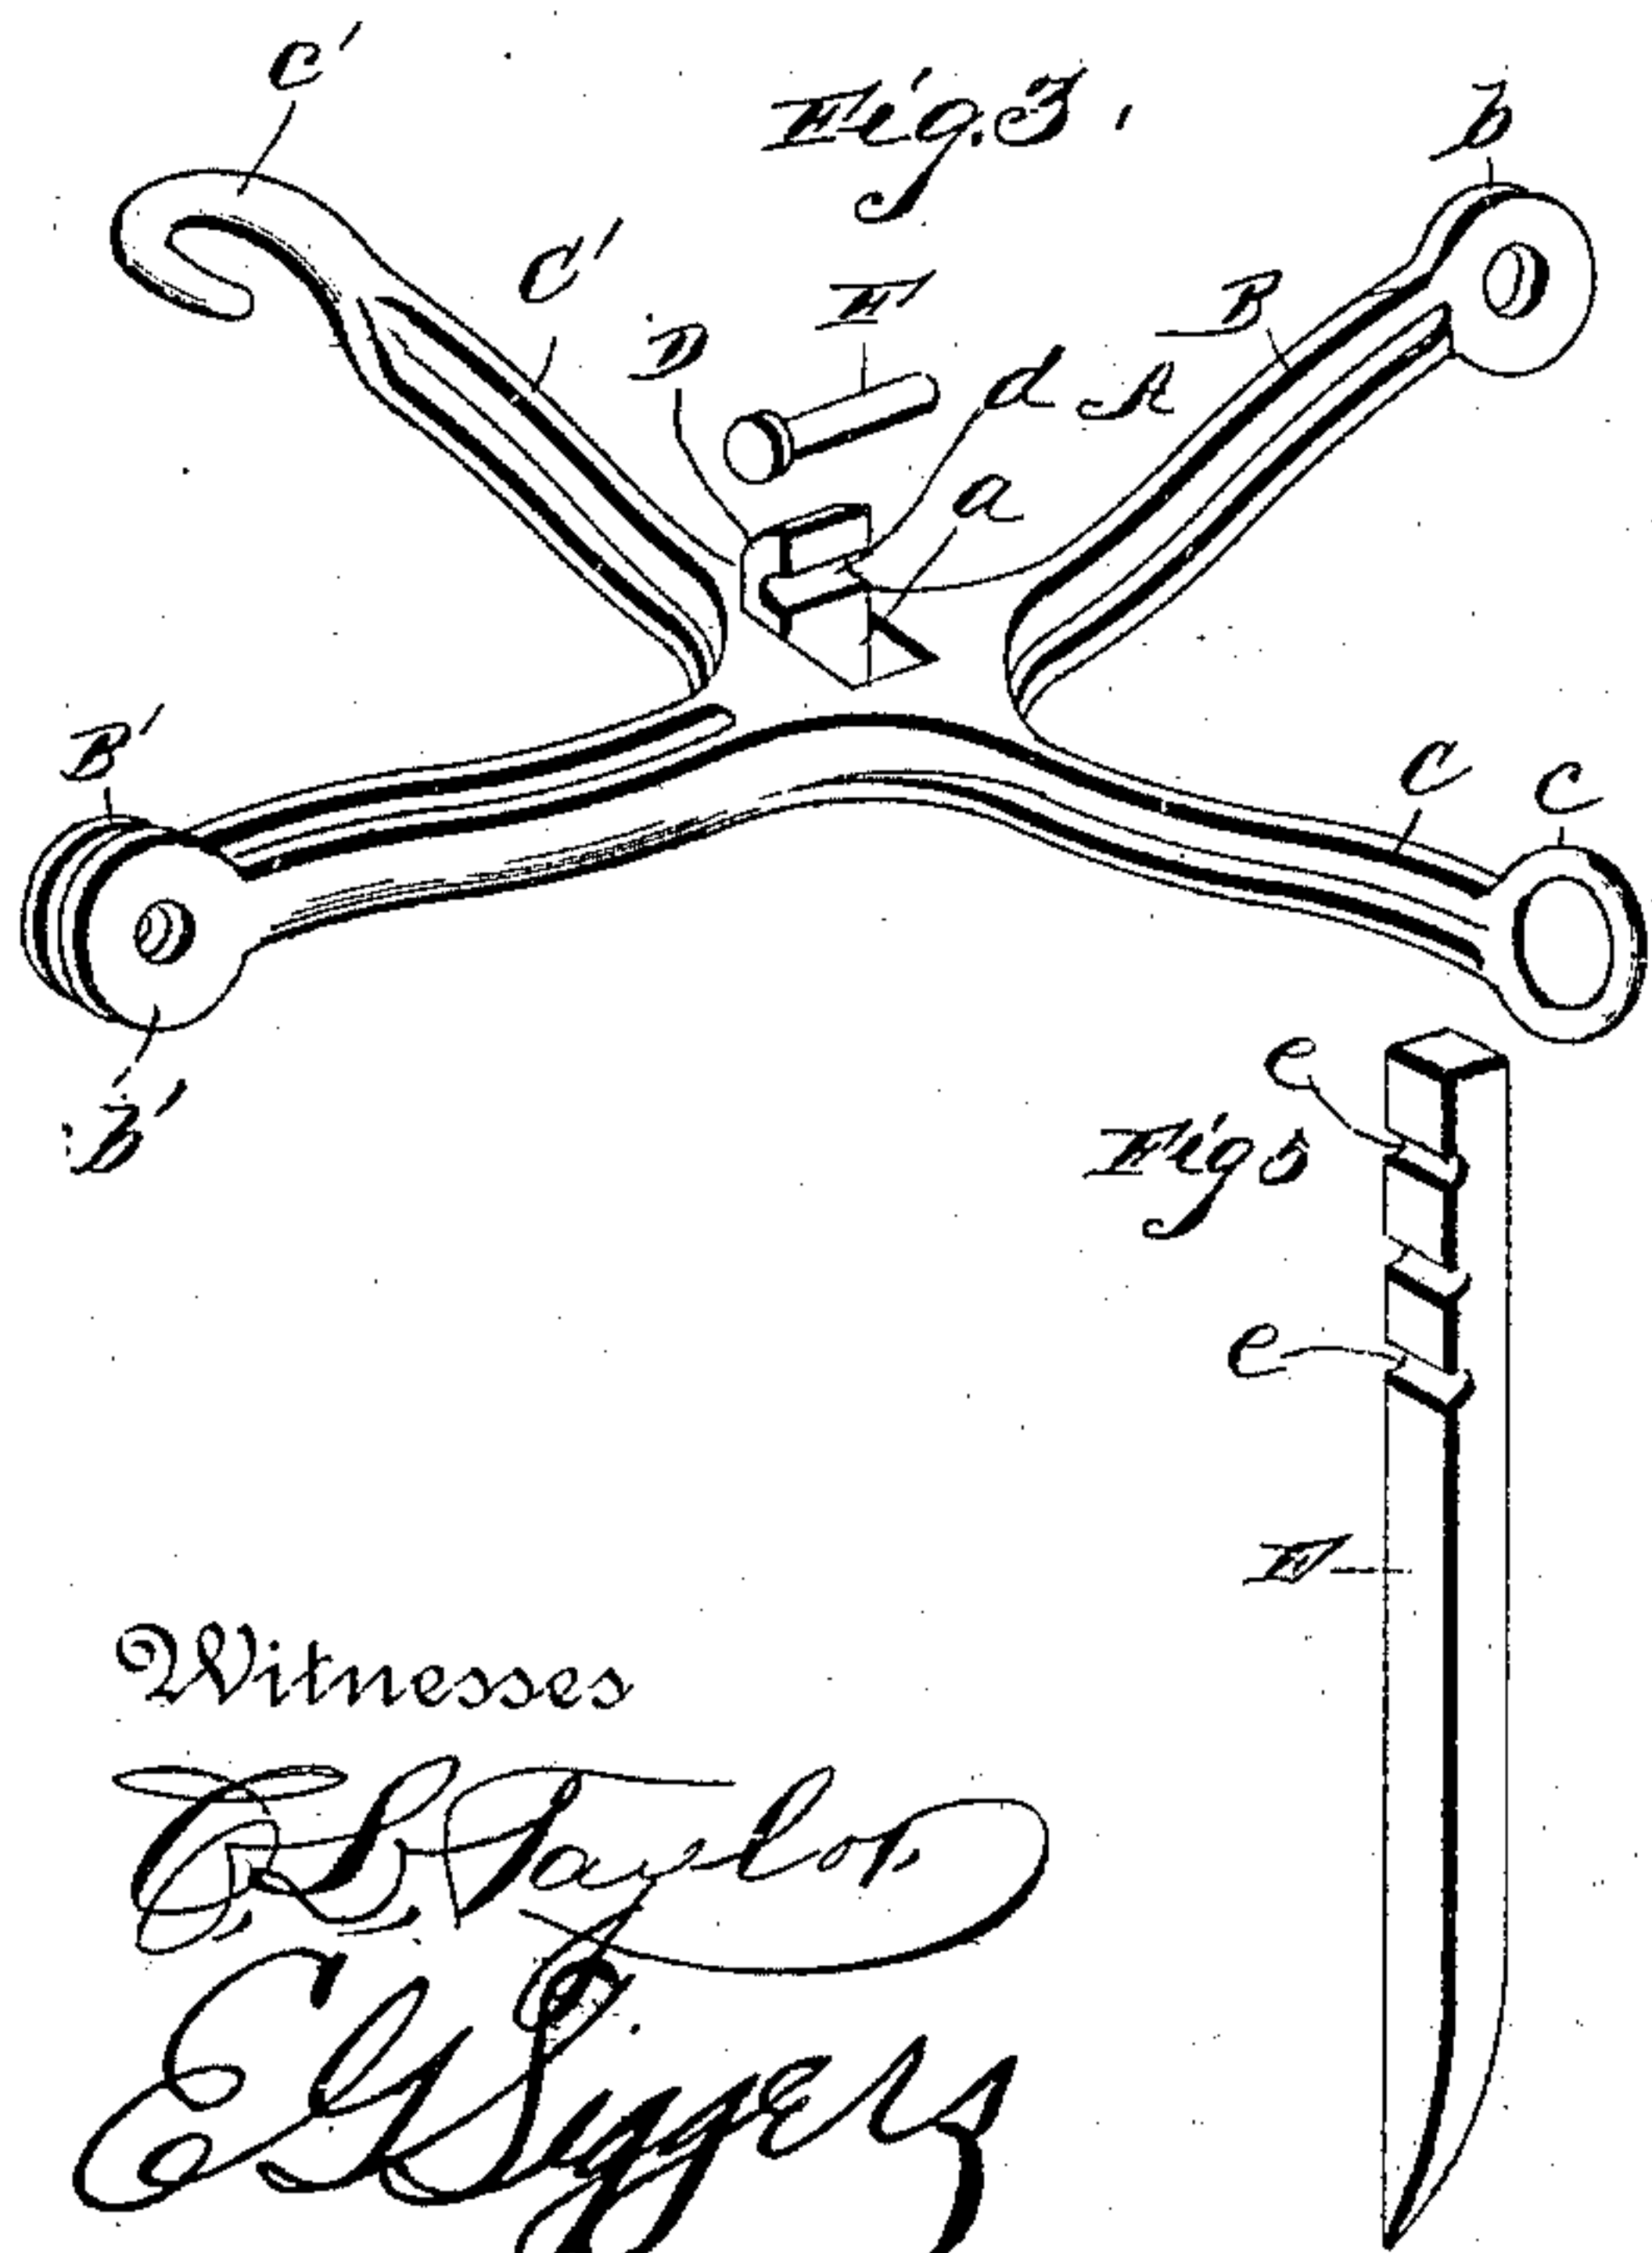 c'
Fig. 3.
b
C'
F
B
D
d
A
a
B'
C
c
b'
e
Fig 5
e
E
Witnesses
E. G. Siggers